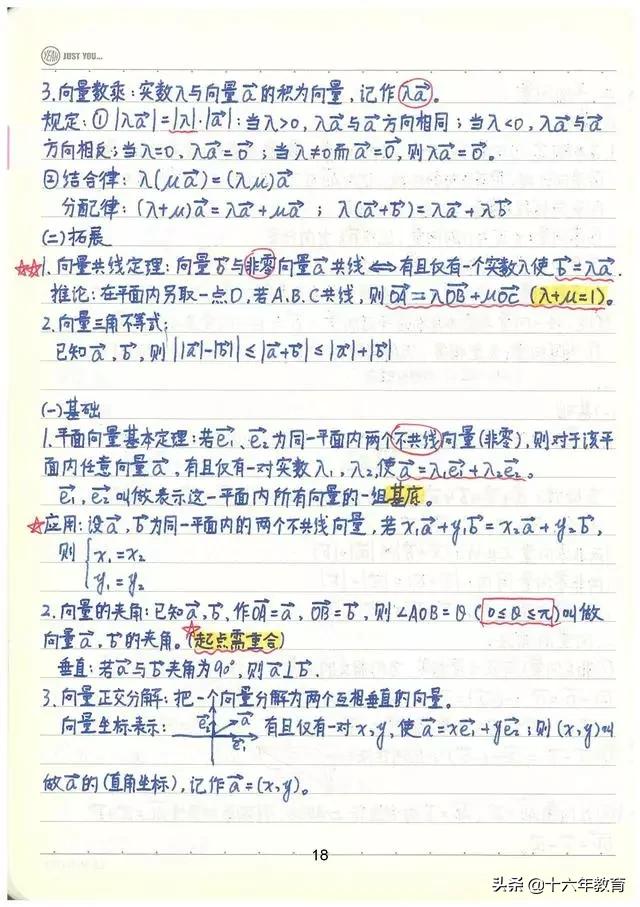 YEAH JUST YOU...
3.向量数乘:实数λ与向量a⃗的积为向量,记作λa⃗。
规定:①|λa⃗|=|λ|·|a⃗|:当λ>0,λa⃗与a⃗方向相同;当λ<0,λa⃗与a⃗
方向相反;当λ=0,λa⃗=0⃗;当λ≠0而a⃗=0⃗,则λa⃗=0⃗。
②结合律:λ(μa⃗)=(λμ)a⃗
分配律:(λ+μ)a⃗=λa⃗+μa⃗;λ(a⃗+b⃗)=λa⃗+λb⃗
(二)拓展
☆☆1.向量共线定理:向量b⃗与非零向量a⃗共线⟺有且仅有一个实数λ使b⃗=λa⃗.
推论:在平面内另取一点O,若A.B.C共线,则OA⃗=λOB⃗+μOC⃗(λ+μ=1)。
2.向量三角不等式:
已知a⃗,b⃗,则||a⃗|-|b⃗||≤|a⃗+b⃗|≤|a⃗|+|b⃗|
(一)基础
1.平面向量基本定理:若e⃗₁、e⃗₂为同一平面内两个不共线向量(非零),则对于该平
面内任意向量a⃗,有且仅有一对实数λ₁,λ₂,使a⃗=λ₁e⃗₁+λ₂e⃗₂。
e⃗₁,e⃗₂叫做表示这一平面内所有向量的一组基底。
☆应用:设a⃗,b⃗为同一平面内的两个不共线向量,若x₁a⃗+y₁b⃗=x₂a⃗+y₂b⃗,
则{x₁=x₂
y₁=y₂
2.向量的夹角:已知a⃗,b⃗,作OA⃗=a⃗,OB⃗=b⃗,则∠AOB=θ(0≤θ≤π)叫做
向量a⃗,b⃗的夹角。☆(起点需重合)
垂直:若a⃗与b⃗夹角为90°,则a⃗⊥b⃗.
3.向量正交分解:把一个向量分解为两个互相垂直的向量。
向量坐标表示: e⃗₂ a⃗ e⃗₁ 有且仅有一对x,y,使a⃗=xe⃗₁+ye⃗₂;则(x,y)叫
做a⃗的(直角坐标),记作a⃗=(x,y)。
18
头条@十六年教育